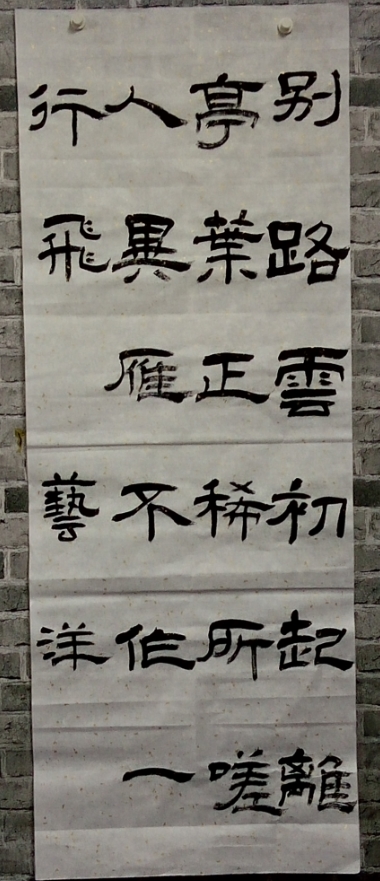 别路雲初起離
亭葉正稀所嗟
人異雁不作一
行飛
藝洋